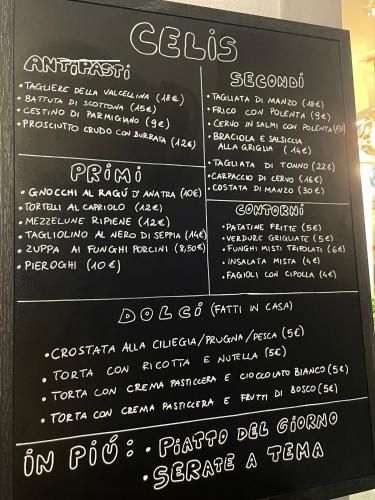 CELIS
ANTIPASTI
• TAGLIERE DELLA VALCELLINA (18€)
• BATTUTA DI SCOTTONA (15€)
• CESTINO DI PARMIGIANO (9€)
• PROSCIUTTO CRUDO CON BURRATA (12€)
PRIMI
• GNOCCHI AL RAGÚ D'ANATRA (10€)
• TORTELLI AL CAPRIOLO (12€)
• MEZZELUNE RIPIENE (12€)
• TAGLIOLINO AL NERO DI SEPPIA (14€)
• ZUPPA AI FUNGHI PORCINI (8,50€)
• PIEROGHI (10€)
SECONDI
• TAGLIATA DI MANZO (18€)
• FRICO CON POLENTA (9€)
• CERVO IN SALMI CON POLENTA
• BRACIOLA E SALSICCIA
ALLA GRIGLIA (14€)
• TAGLIATA DI TONNO (22€)
• CARPACCIO DI CERVO (16€)
• COSTATA DI MANZO (30€)
CONTORNI
• PATATINE FRITTE (5€)
• VERDURE GRIGLIATE (5€)
• FUNGHI MISTI TRIFOLATI (6€)
• INSALATA MISTA (4€)
• FAGIOLI CON CIPOLLA (4€)
DOLCI (FATTI IN CASA)
• CROSTATA ALLA CILIEGIA/PRUGNA/PESCA (5€)
• TORTA CON RICOTTA E NUTELLA (5€)
• TORTA CON CREMA PASTICCERA E CIOCCOLATO BIANCO (5€)
• TORTA CON CREMA PASTICCERA E FRUTTI DI BOSCO (5€)
IN PIÚ: • PIATTO DEL GIORNO
• SERATE A TEMA